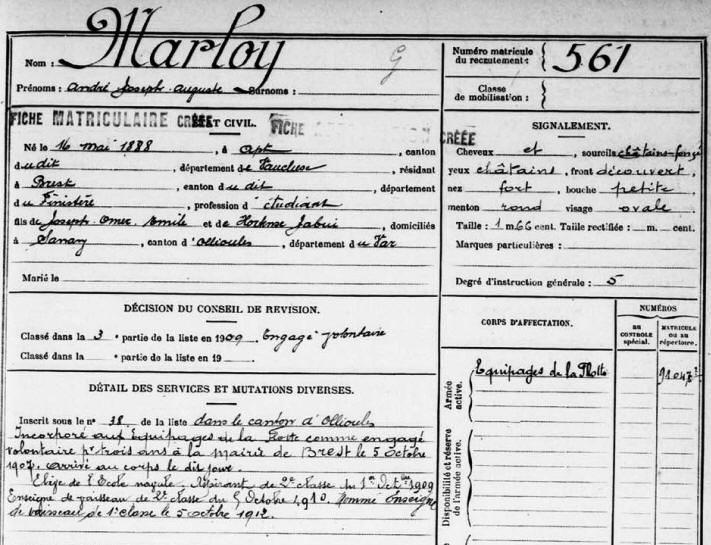 Nom : Marloy
G
Prénoms : André Joseph Auguste Surnoms :
Numéro matricule
du recrutement :
561
Classe
de mobilisation :
FICHE MATRICULAIRE CRÉÉE
ET CIVIL.
FICHE
CRÉÉE
Né le 16 mai 1888, à Apt, canton
dudit, département de Vaucluse, résidant
à Brest, canton dudit, département
du Finistère, profession d'étudiant
fils de Joseph Omer Emile et de Hortense Jabui, domiciliés
à Sanary, canton d'Ollioules, département du Var
Marié le
SIGNALEMENT.
Cheveux et, sourcils châtains-foncé
yeux châtains, front découvert,
nez fort, bouche petite,
menton rond visage ovale
Taille : 1 m. 66 cent. Taille rectifiée : m. cent.
Marques particulières :
Degré d'instruction générale : 5
DÉCISION DU CONSEIL DE REVISION.
Classé dans la 3e partie de la liste en 1909 Engagé volontaire
Classé dans la e partie de la liste en 19
DÉTAIL DES SERVICES ET MUTATIONS DIVERSES.
Inscrit sous le no 38 de la liste dans le canton d'Ollioules
Incorporé aux Equipages de la Flotte comme engagé
volontaire pr trois ans à la mairie de Brest le 5 octobre
1907. arrivé au corps le dit jour.
Elève de l'Ecole navale; Aspirant de 2e classe du 1er Octbre 1909
Enseigne de vaisseau de 2e classe du 5 Octobre 1910. Nommé Enseigne
de vaisseau de 1e classe le 5 octobre 1912.
CORPS D'AFFECTATION.
NUMÉROS
AU
CONTROLE
spécial.
MATRICULE
OU AU
répertoire.
Armée
active.
Equipages de la Flotte
91047
Disponibilité et réserve
de l'armée active.